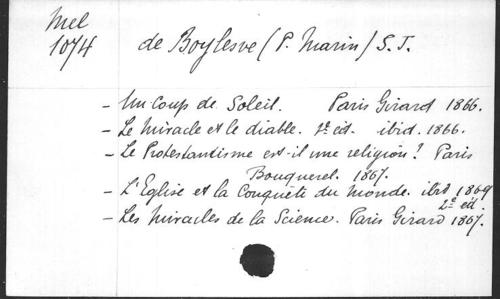 Mel
1074
de Boylesve (P. Marin) S. J.
- Un coup de Soleil. Paris Girard 1866.
- Le Miracle et le diable. 2e éd. ibid. 1866.
- Le Protestantisme est-il une religion? Paris
Bouquerel. 1867.
- L'Eglise et la Conquête du Monde. ibid 1869
2e éd.
- Les Miracles de la Science. Paris Girard 1867.